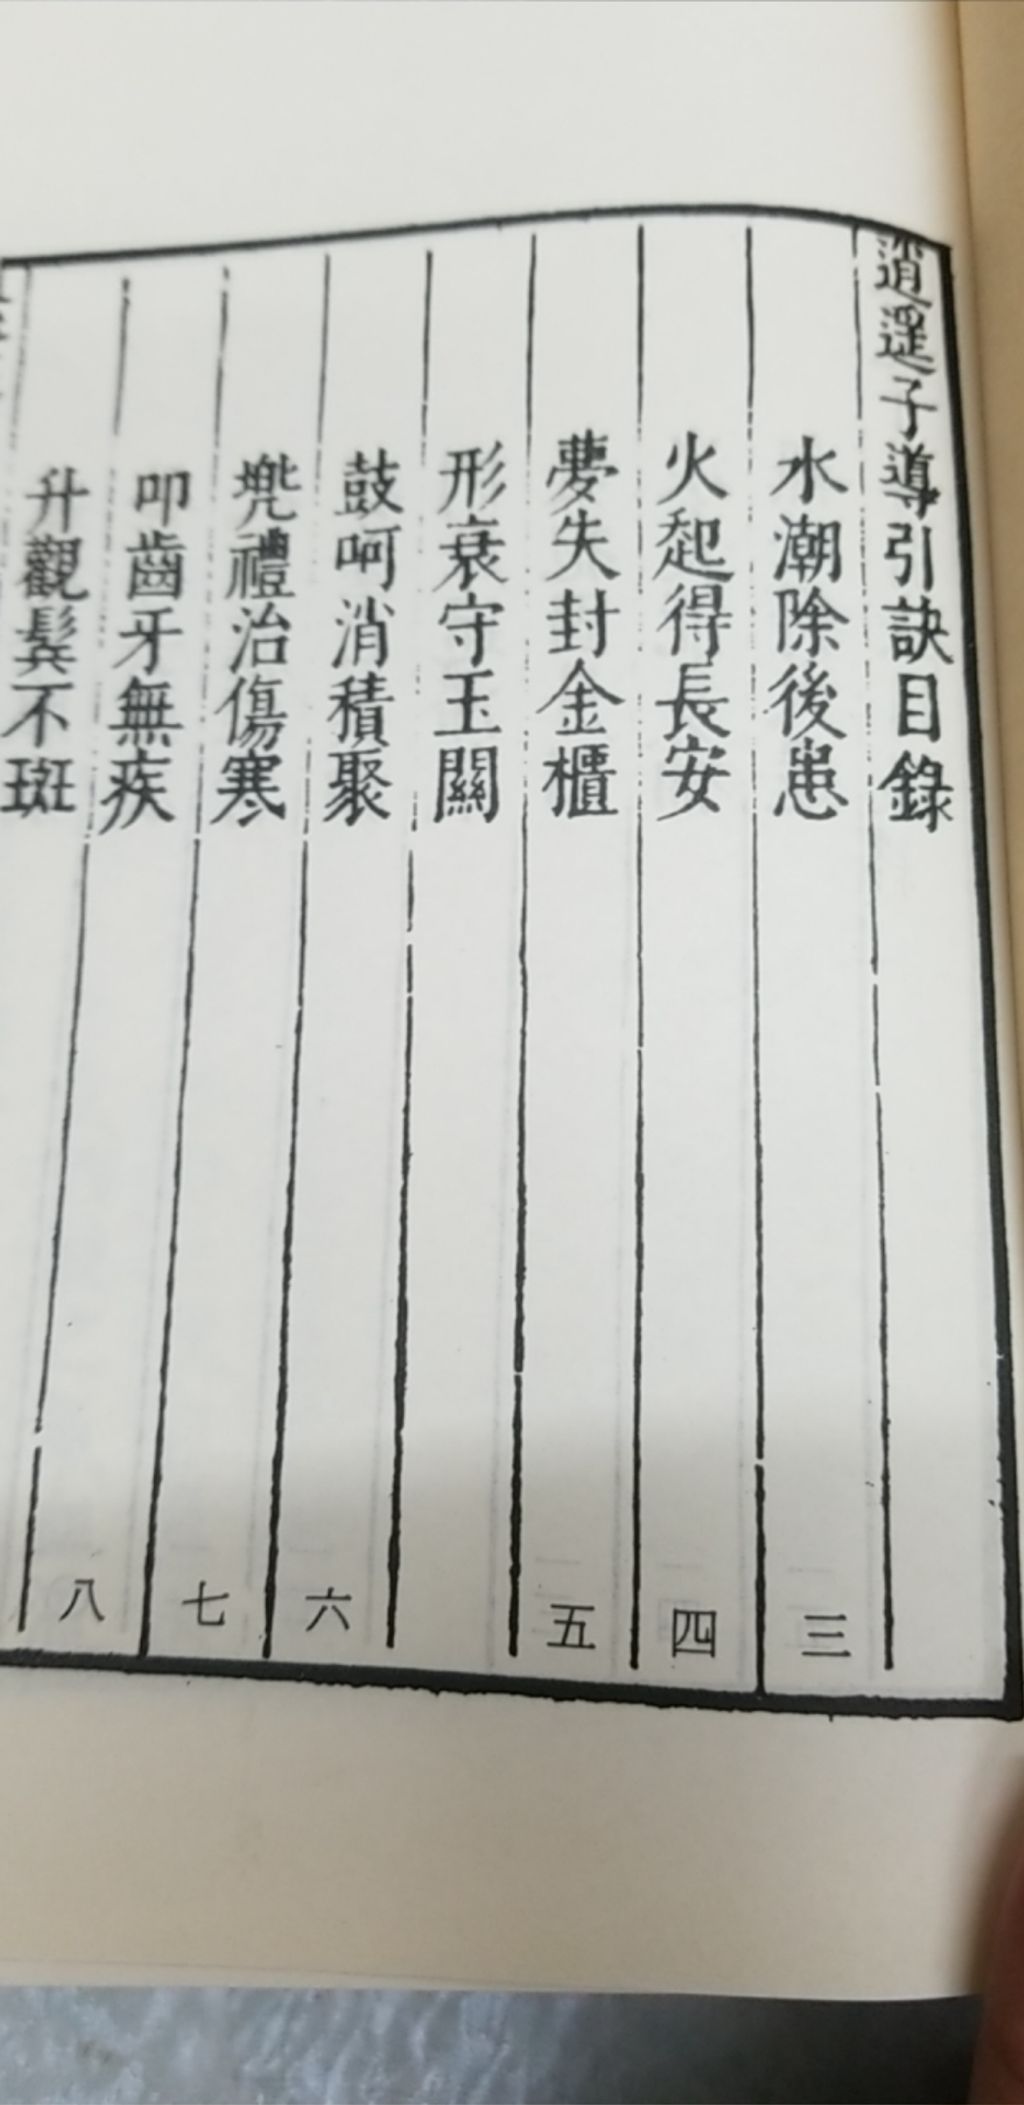 逍遥子導引訣目錄
水潮除後患 三
火起得長安 四
夢失封金櫃 五
形衰守玉關
鼓呵消積聚 六
兠禮治傷寒 七
叩齒牙無疾 八
升觀鬂不斑